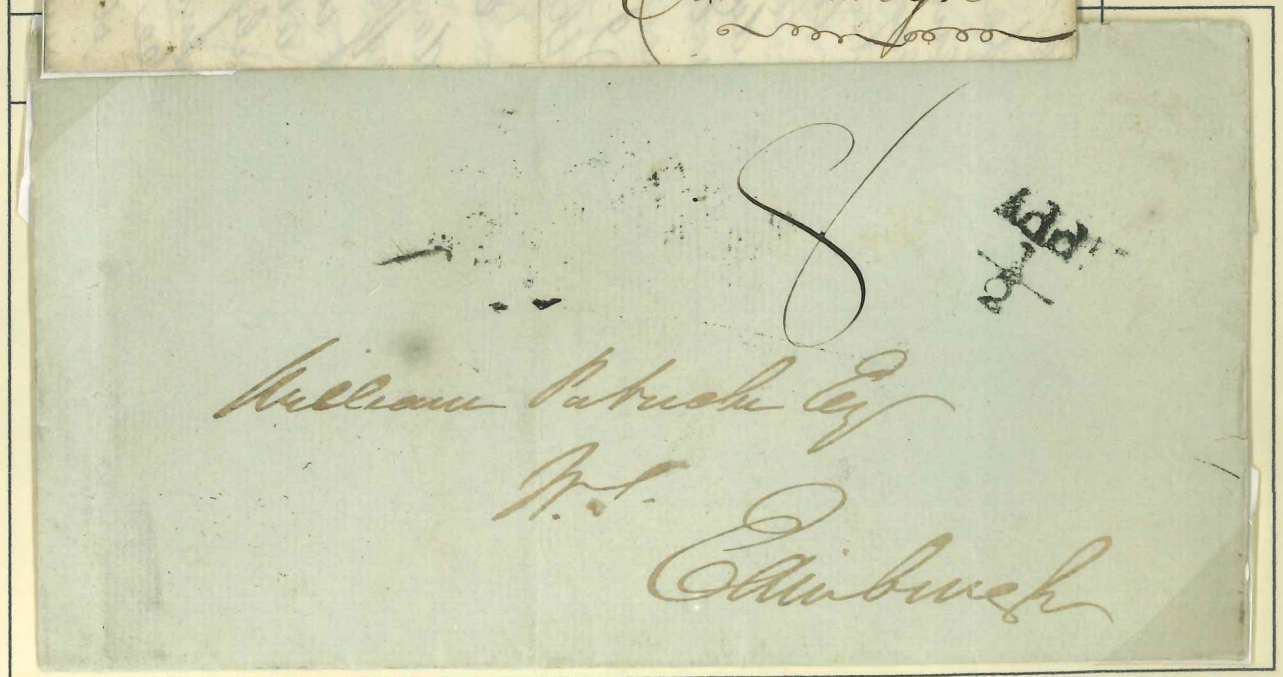 8
Add
½
William Patrick Esq
W.S.
Edinburgh